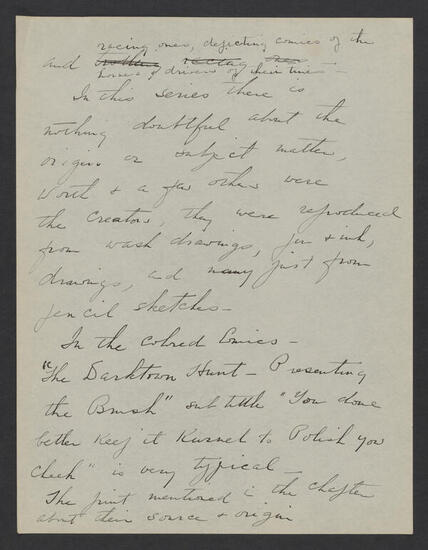 racing ones, depicting comics of the
and trotting racing ones
horses & drivers of their time —
In this series there is
nothing doubtful about the
origin or subject matter,
Worth & a few others were
the creators, they were reproduced
from wash drawings, pen & ink,
drawings, and many just from
pencil sketches —
In the colored Comics —
"The Darktown Hunt — Presenting
the Brush" subtitle "You done
better keep it Kurnel to Polish you
cheek" is very typical —
The print mentioned in the chapter
about their source & origin